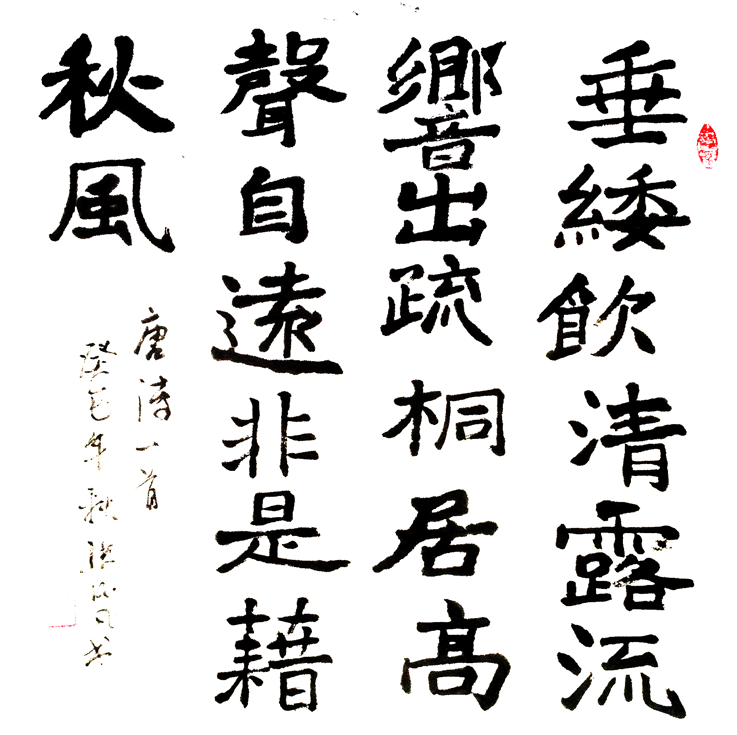 垂緌飲清露流
響出疏桐居高
聲自遠非是藉
秋風
唐詩一首
癸巳年秋
書